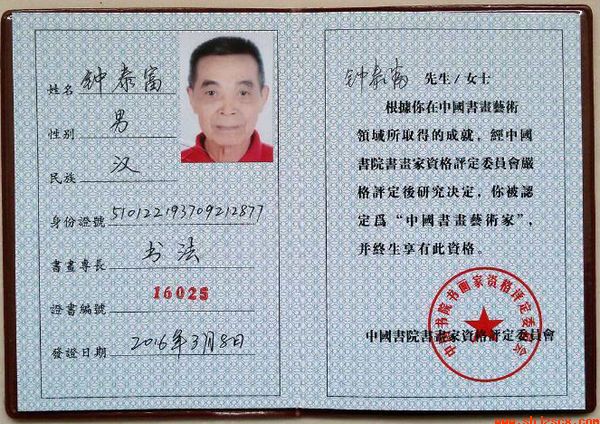 姓名 钟泰富
性别 男
民族 汉
身份證號 510122193709212877
書畫專長 书法
證書編號 16025
發證日期 2016年3月8日
钟泰富 先生/女士
根據你在中國書畫藝術
領域所取得的成就，經中國
書院書畫家資格評定委員會嚴
格評定後研究決定，你被認
定爲“中國書畫藝術家”，
并終生享有此資格。
中国书院书画家资格评定委员会
中國書院書畫家資格評定委員會